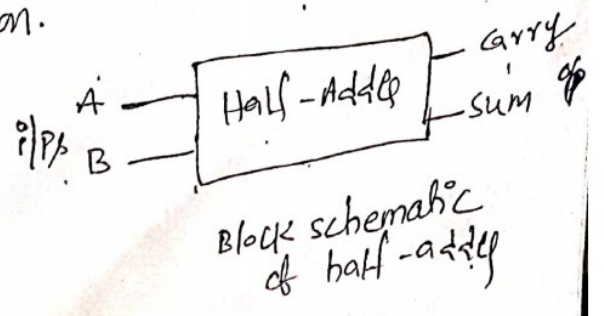 on.
carry
A
Half-Adder
i/ps
sum
o/p
B
Block schematic
of half-adder